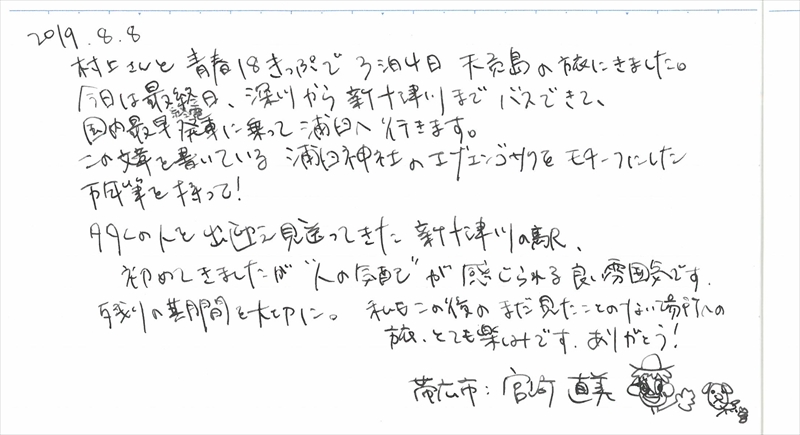 2019.8.8
村上さんと青春18きっぷで3泊4日 天売島の旅にきました。
今日は最終日、深川から新十津川までバスできて、
国内最早最終列車に乗って浦臼へ行きます。
この文章を書いている浦臼神社のエゾエンゴサクをモチーフにした
万年筆を持って！
多くの人と出迎え見送ってきた新十津川の駅、
初めてきましたが“人の気配”が感じられる良い雰囲気です。
残りの期間を大切に。私もこの後のまだ見たことのない場所への
旅、とても楽しみです。ありがとう！
帯広市：宮崎 直美